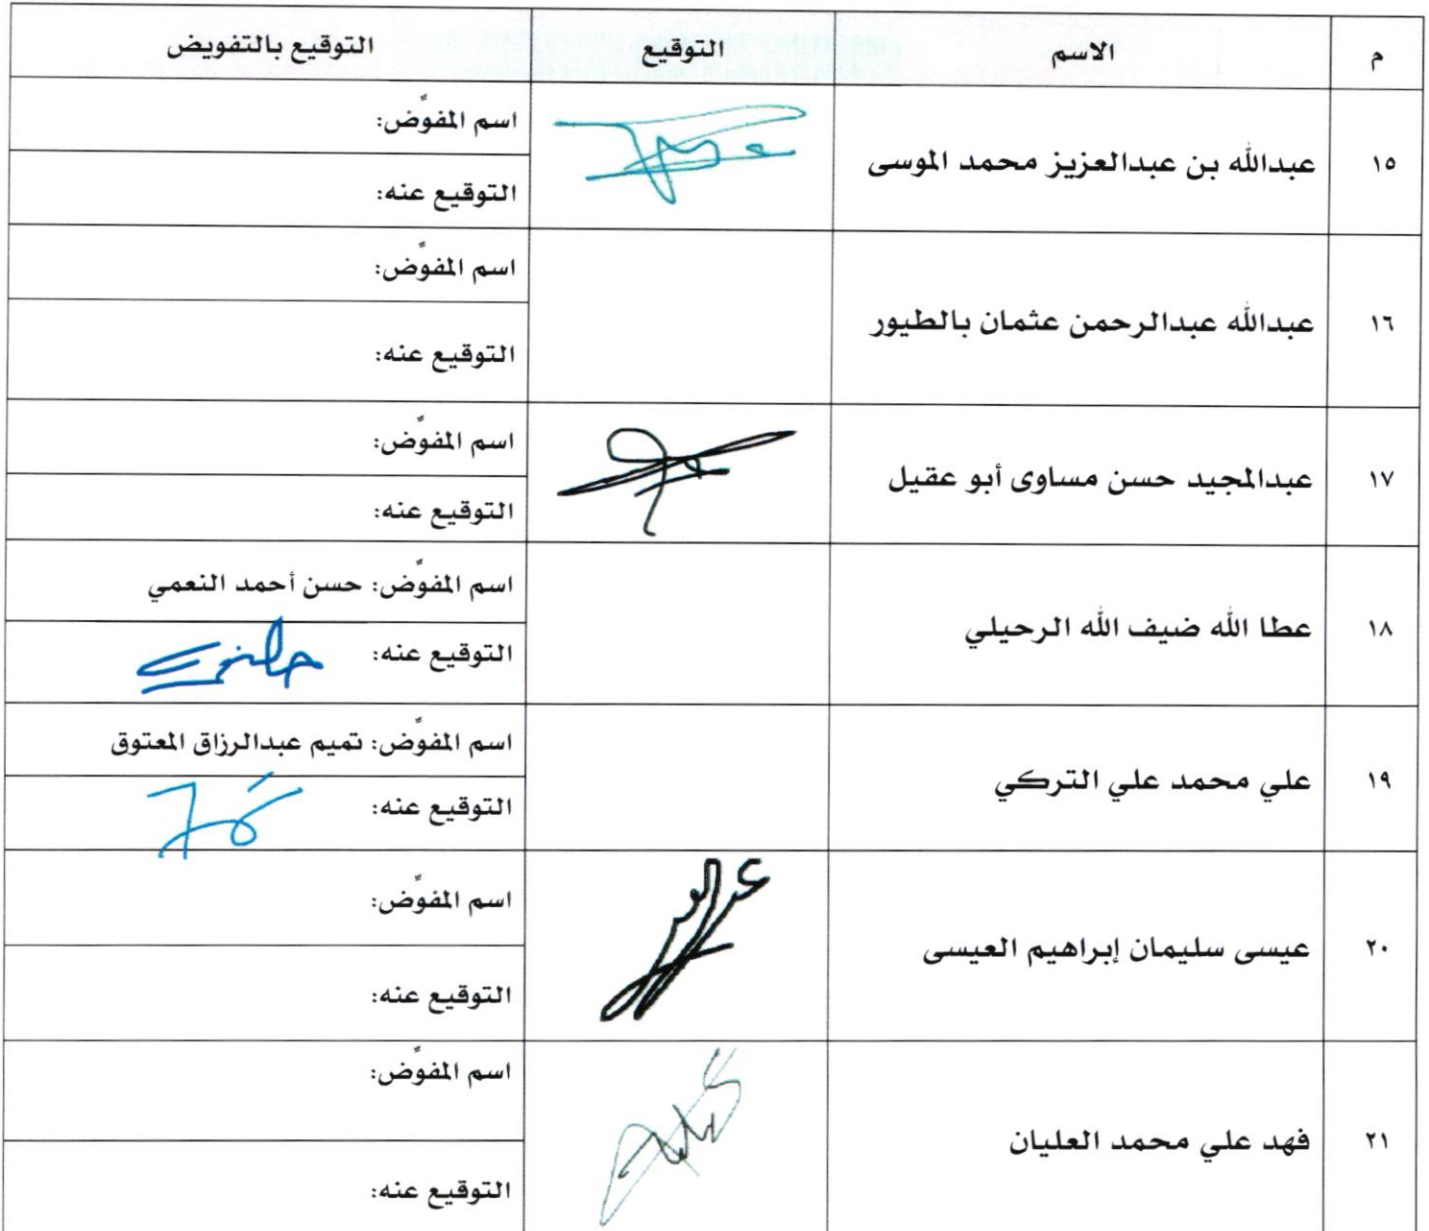 م الاسم التوقيع التوقيع بالتفويض
١٥ عبدالله بن عبدالعزيز محمد الموسى اسم المفوَّض:
التوقيع عنه:
١٦ عبدالله عبدالرحمن عثمان بالطيور اسم المفوَّض:
التوقيع عنه:
١٧ عبدالمجيد حسن مساوى أبو عقيل اسم المفوَّض:
التوقيع عنه:
١٨ عطا الله ضيف الله الرحيلي اسم المفوَّض: حسن أحمد النعمي
التوقيع عنه:
١٩ علي محمد علي التركي اسم المفوَّض: تميم عبدالرزاق المعتوق
التوقيع عنه:
٢٠ عيسى سليمان إبراهيم العيسى اسم المفوَّض:
التوقيع عنه:
٢١ فهد علي محمد العليان اسم المفوَّض:
التوقيع عنه: